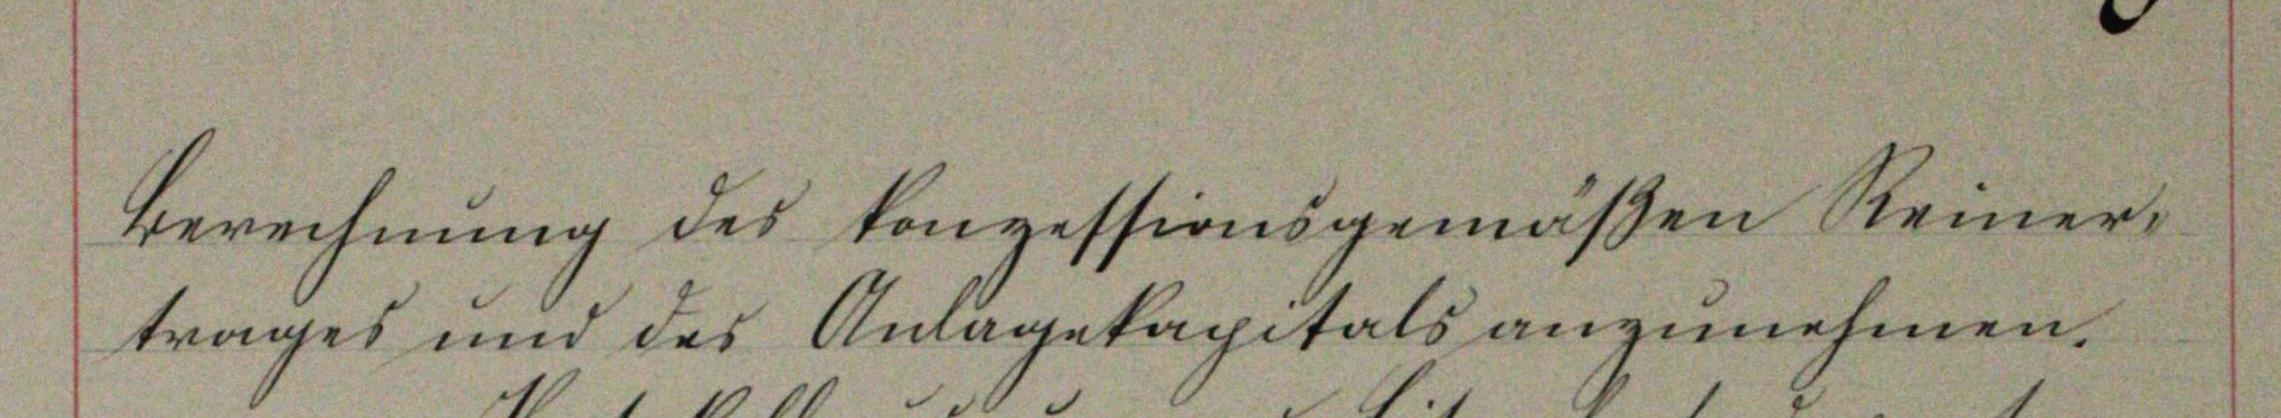 Berechnung des konzessionsgemäßen Reiner-
trages und des Anlagekapitals anzunehmen.